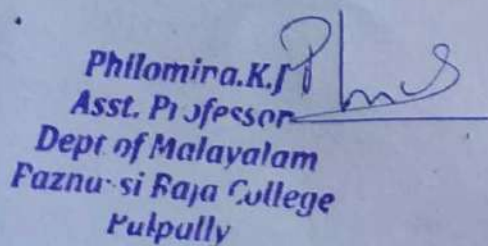 Philomina.K.J
Asst. Professor
Dept of Malayalam
Pazhassi Raja College
Pulpally